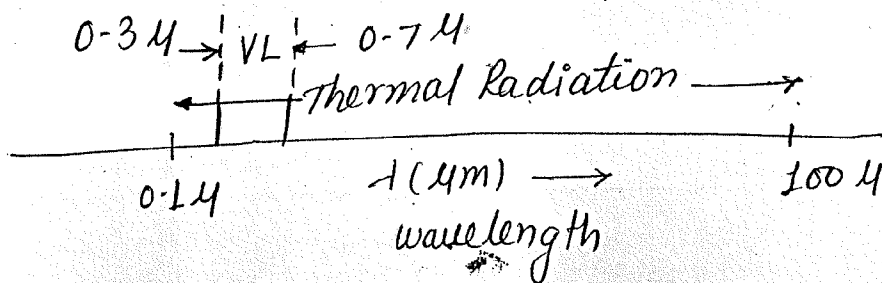 0.3 μ → VL ← 0.7 μ
Thermal Radiation
0.1 μ
λ (μm) →
100 μ
wavelength